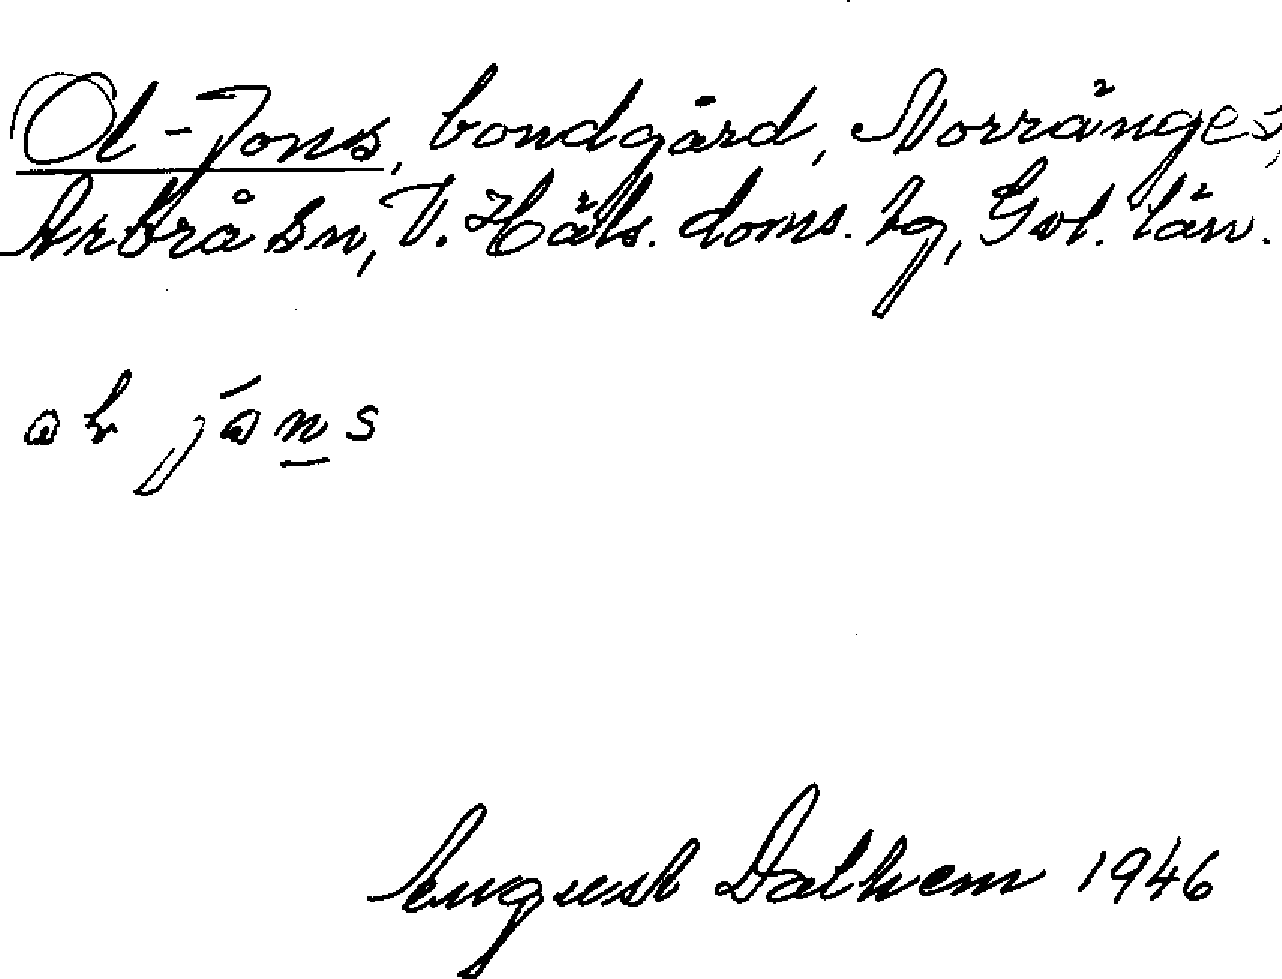 Ol-Jons, bondgård, Norränges,
Arbrå sn, V. Häls. doms. hg, Gvl. län.
jóns
August Dalhem 1946